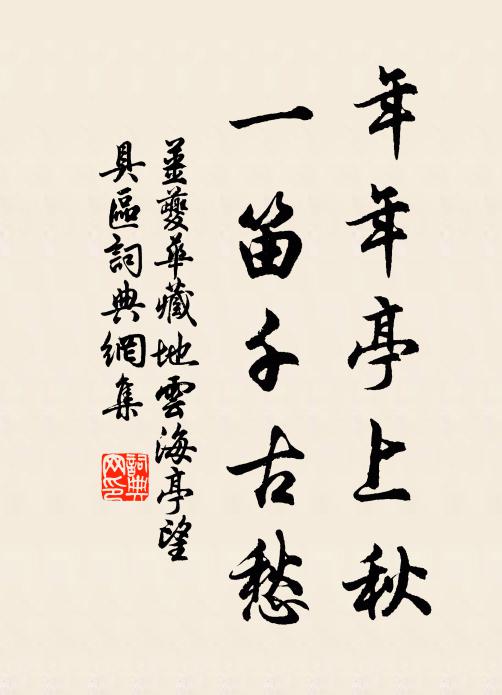 年年亭上秋
一笛千古愁
姜夔華藏地雲海亭望
具區詞典網集
詞典
網印